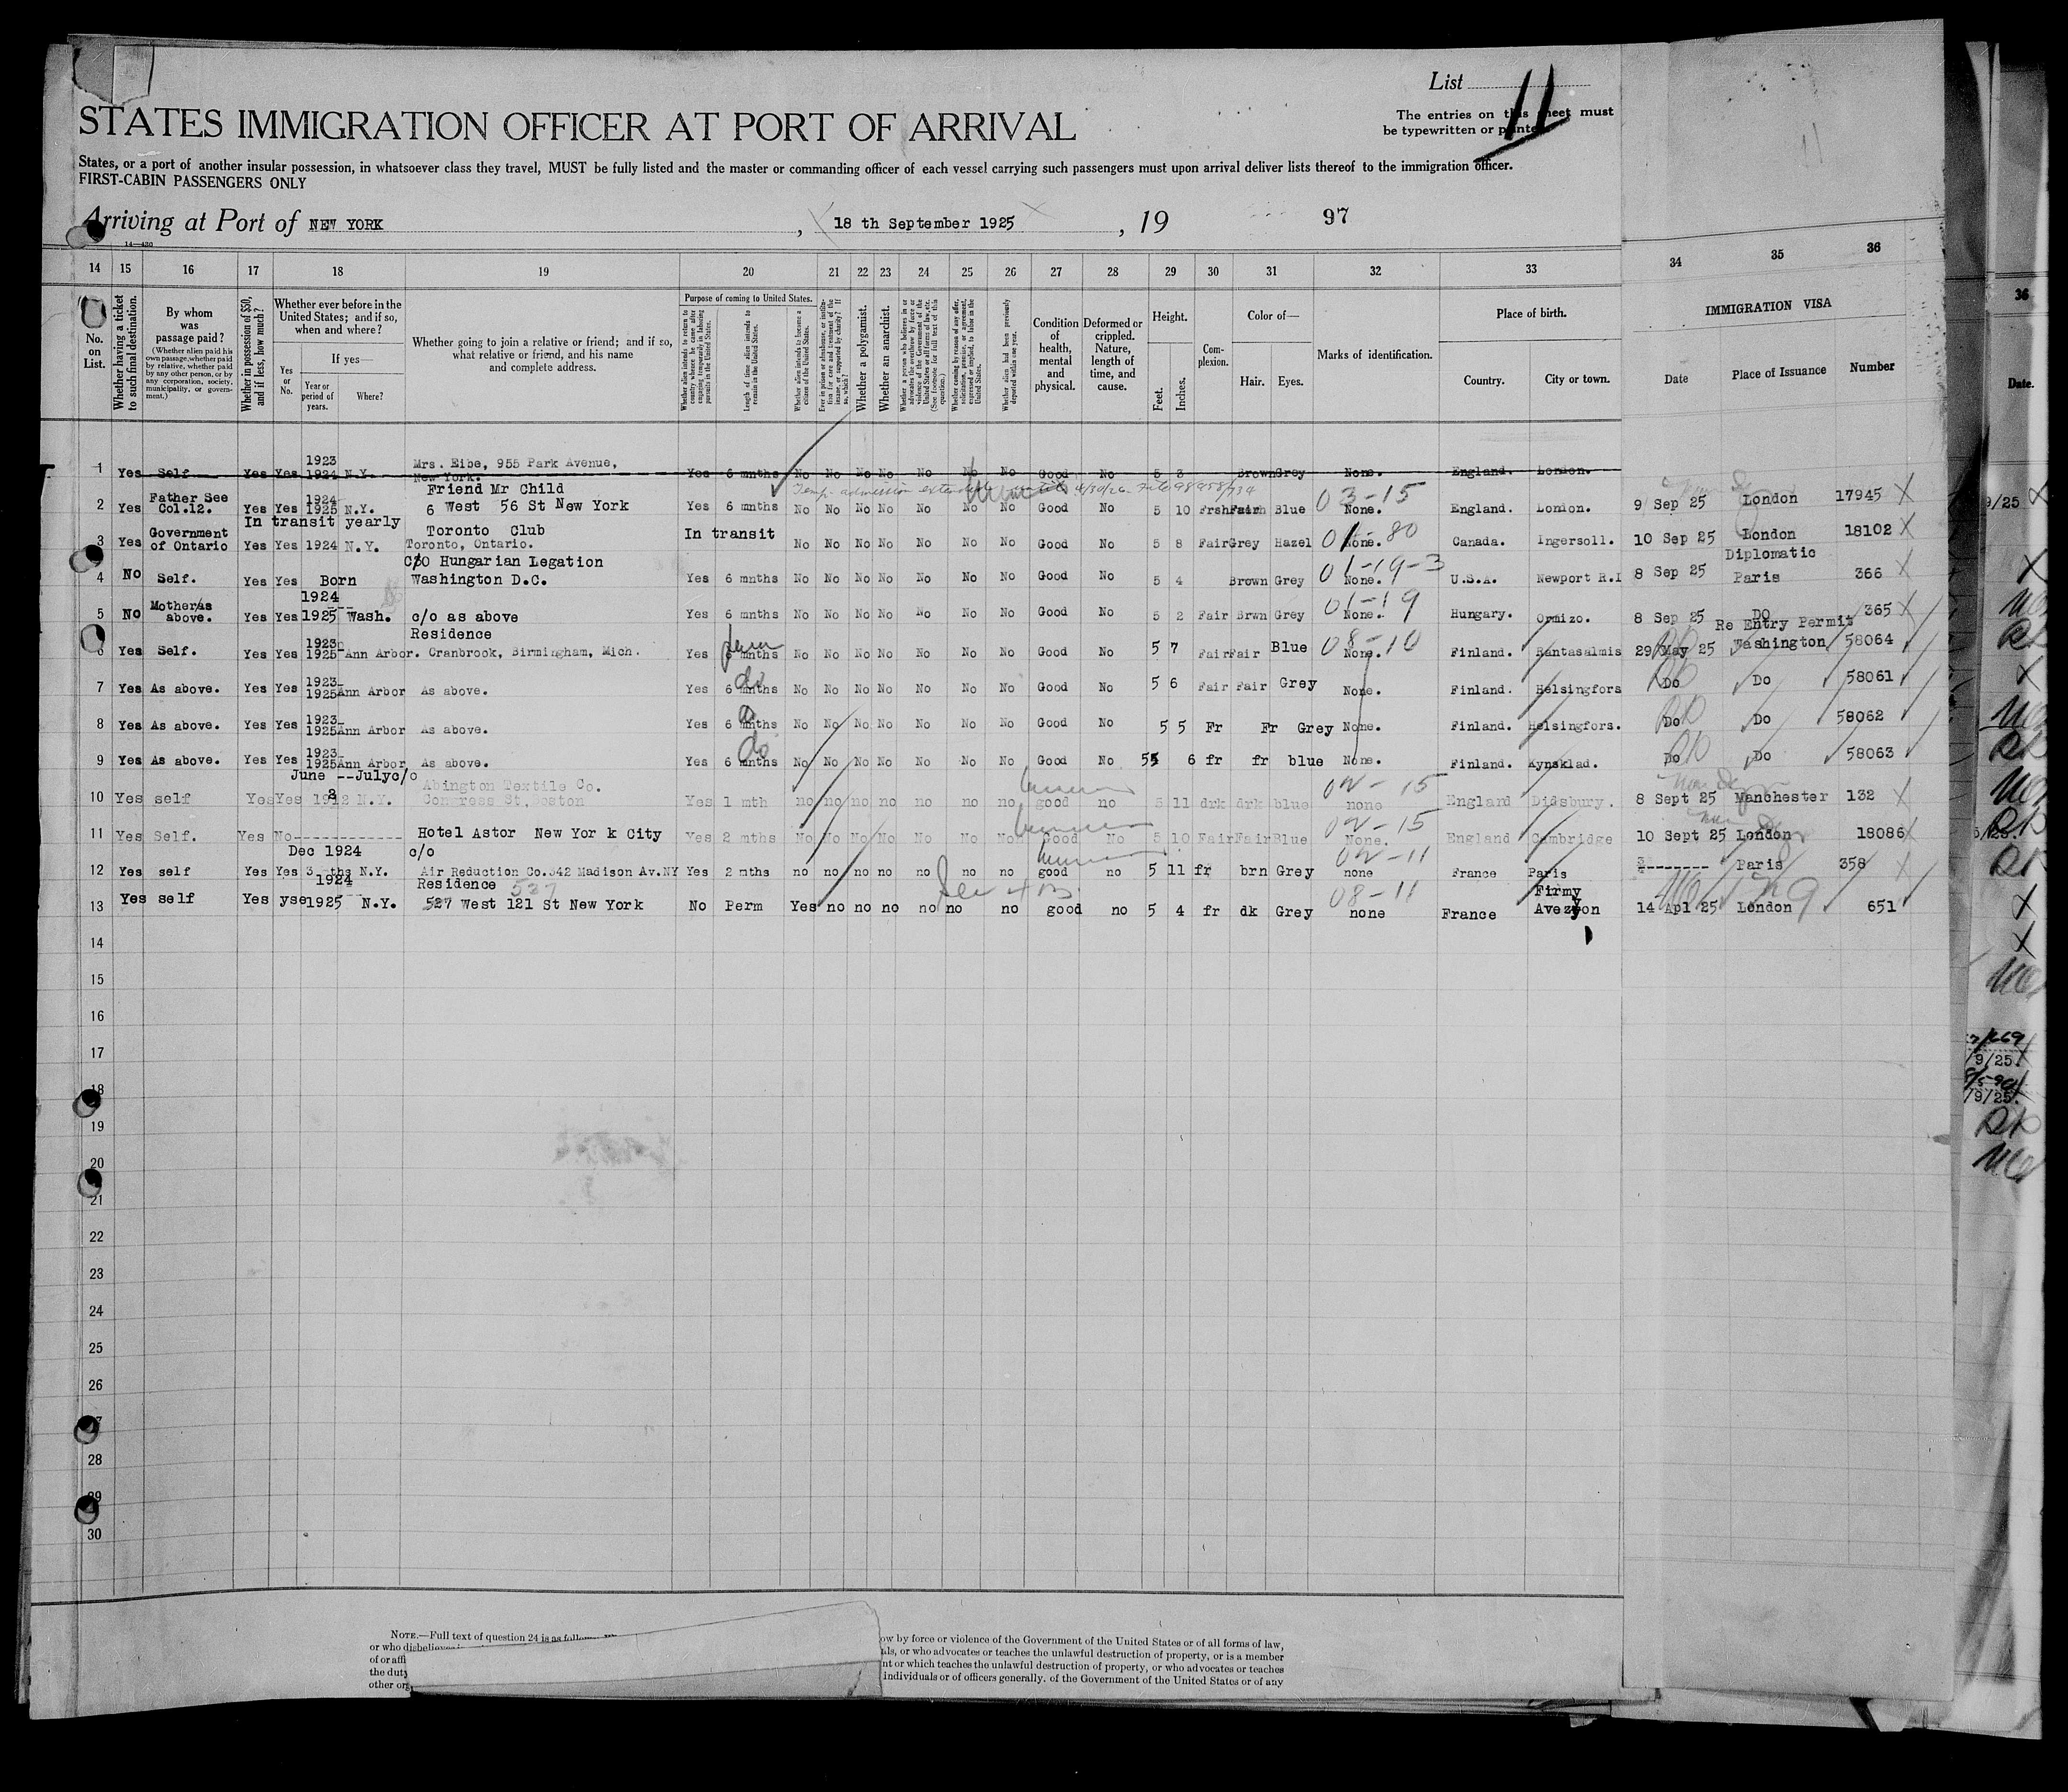 List 11
STATES IMMIGRATION OFFICER AT PORT OF ARRIVAL
The entries on this sheet must
be typewritten or printed
States, or a port of another insular possession, in whatsoever class they travel, MUST be fully listed and the master or commanding officer of each vessel carrying such passengers must upon arrival deliver lists thereof to the immigration officer.
FIRST-CABIN PASSENGERS ONLY
Arriving at Port of NEW YORK , 18 th September 1925 , 19 97
14—430
14 15 16 17 18 19 20 21 22 23 24 25 26 27 28 29 30 31 32 33 34 35 36
No. on List.
Whether having a ticket to such final destination.
By whom was passage paid?
(Whether alien paid his own passage, whether paid by relative, whether paid by any other person, or by any corporation, society, municipality, or government.)
Whether in possession of $50, and if less, how much?
Whether ever before in the United States; and if so, when and where?
Yes or No.
If yes—
Year or period of years.
Where?
Whether going to join a relative or friend; and if so, what relative or friend, and his name and complete address.
Purpose of coming to United States.
Whether alien intends to return to country whence he came after engaging temporarily in laboring pursuits in the United States.
Length of time alien intends to remain in the United States.
Whether alien intends to become a citizen of the United States.
Ever in prison or almshouse, or institution for care and treatment of the insane, or supported by charity? If so, which?
Whether a polygamist.
Whether an anarchist.
Whether coming by reason of any offer, solicitation, promise, or agreement, expressed or implied, to labor in the United States.
Whether alien had been previously deported within one year.
Condition of health, mental and physical.
Deformed or crippled. Nature, length of time, and cause.
Height.
Feet. Inches.
Complexion.
Color of—
Hair. Eyes.
Marks of identification.
Place of birth.
Country. City or town.
IMMIGRATION VISA
Date Place of Issuance Number
1 Yes Self Yes Yes 1923 1924 N.Y. Mrs. Eibe, 955 Park Avenue, New York. Yes 6 mnths No No No No No No No Good No 5 3 Brown Grey None. England. London.
Temp. admission extended until 4/30/26.
2 Yes Father See Col.12. Yes Yes 1924 1925 N.Y. Friend Mr Child 6 West 56 St New York Yes 6 mnths No No No No No No No Good No 5 10 Frsh Fair Blue 03-15 None. England. London. 9 Sep 25 London 17945
3 Yes Government of Ontario Yes Yes In transit yearly 1924 N.Y. Toronto Club Toronto, Ontario. In transit No No No No No No No Good No 5 8 Fair Grey Hazel 01-80 None. Canada. Ingersoll. 10 Sep 25 London 18102
4 No Self. Yes Yes Born C/O Hungarian Legation Washington D.C. Yes 6 mnths No No No No No No No Good No 5 4 Brown Grey 01-19-3 None. U.S.A. Newport R.I 8 Sep 25 Diplomatic Paris 366
5 No Mother as above. Yes Yes 1924 1925 Wash. c/o as above Yes 6 mnths No No No No No No No Good No 5 2 Fair Brwn Grey 01-19 None. Hungary. Ormizo. 8 Sep 25 DO 365
6 Yes Self. Yes Yes 1923 1925 Ann Arbor. Residence Cranbrook, Birmingham, Mich. Yes 6 mnths perm No No No No No No No Good No 5 7 Fair Fair Blue 08-10 None. Finland. Rantasalmis 29 May 25 Re Entry Permit Washington 58064
7 Yes As above. Yes Yes 1923 1925 Ann Arbor As above. Yes 6 mnths do No No No No No No No Good No 5 6 Fair Fair Grey None. Finland. Helsingfors Do Do 58061
8 Yes As above. Yes Yes 1923 1925 Ann Arbor As above. Yes 6 mnths No No No No No No No Good No 5 5 Fr Fr Grey None. Finland. Helsingfors. Do Do 58062
9 Yes As above. Yes Yes 1923 1925 Ann Arbor As above. Yes 6 mnths do No No No No No No No Good No 5 6 fr fr blue None. Finland. Kynsklad. Do Do 58063
10 Yes self Yes Yes June --July 1912 N.Y. c/o Abington Textile Co. Congress St, Boston Yes 1 mth no no no no no no no good no 5 11 drk drk blue 02-15 none England Didsbury. 8 Sept 25 Manchester 132
11 Yes Self. Yes No------------ Hotel Astor New Yor k City Yes 2 mths No No No No No No No Good No 5 10 Fair Fair Blue 02-15 None. England Cambridge 10 Sept 25 London 18086
12 Yes self Yes Yes Dec 1924 N.Y. c/o Air Reduction Co.342 Madison Av.NY Yes 2 mths no no no no no no no good no 5 11 fr brn Grey 02-11 none France Paris -------- Paris 358
13 Yes self Yes yse 1924 1925 N.Y. Residence 537 527 West 121 St New York No Perm Yes no no no no no no good no 5 4 fr dk Grey 08-11 none France Firmy Aveyron 14 Apl 25 London 651
14
15
16
17
18
19
20
21
22
23
24
25
26
27
28
29
30
NOTE.—Full text of question 24 is as
ow by force or violence of the Government of the United States or of all forms of law,
or who
als, or who advocates or teaches the unlawful destruction of property, or is a member
of or
nt or which teaches the unlawful destruction of property, or who advocates or teaches
the
individuals or of officers generally. of the Government of the United States or of any
other
36
Date.
9/25
9/25.
/9/25.